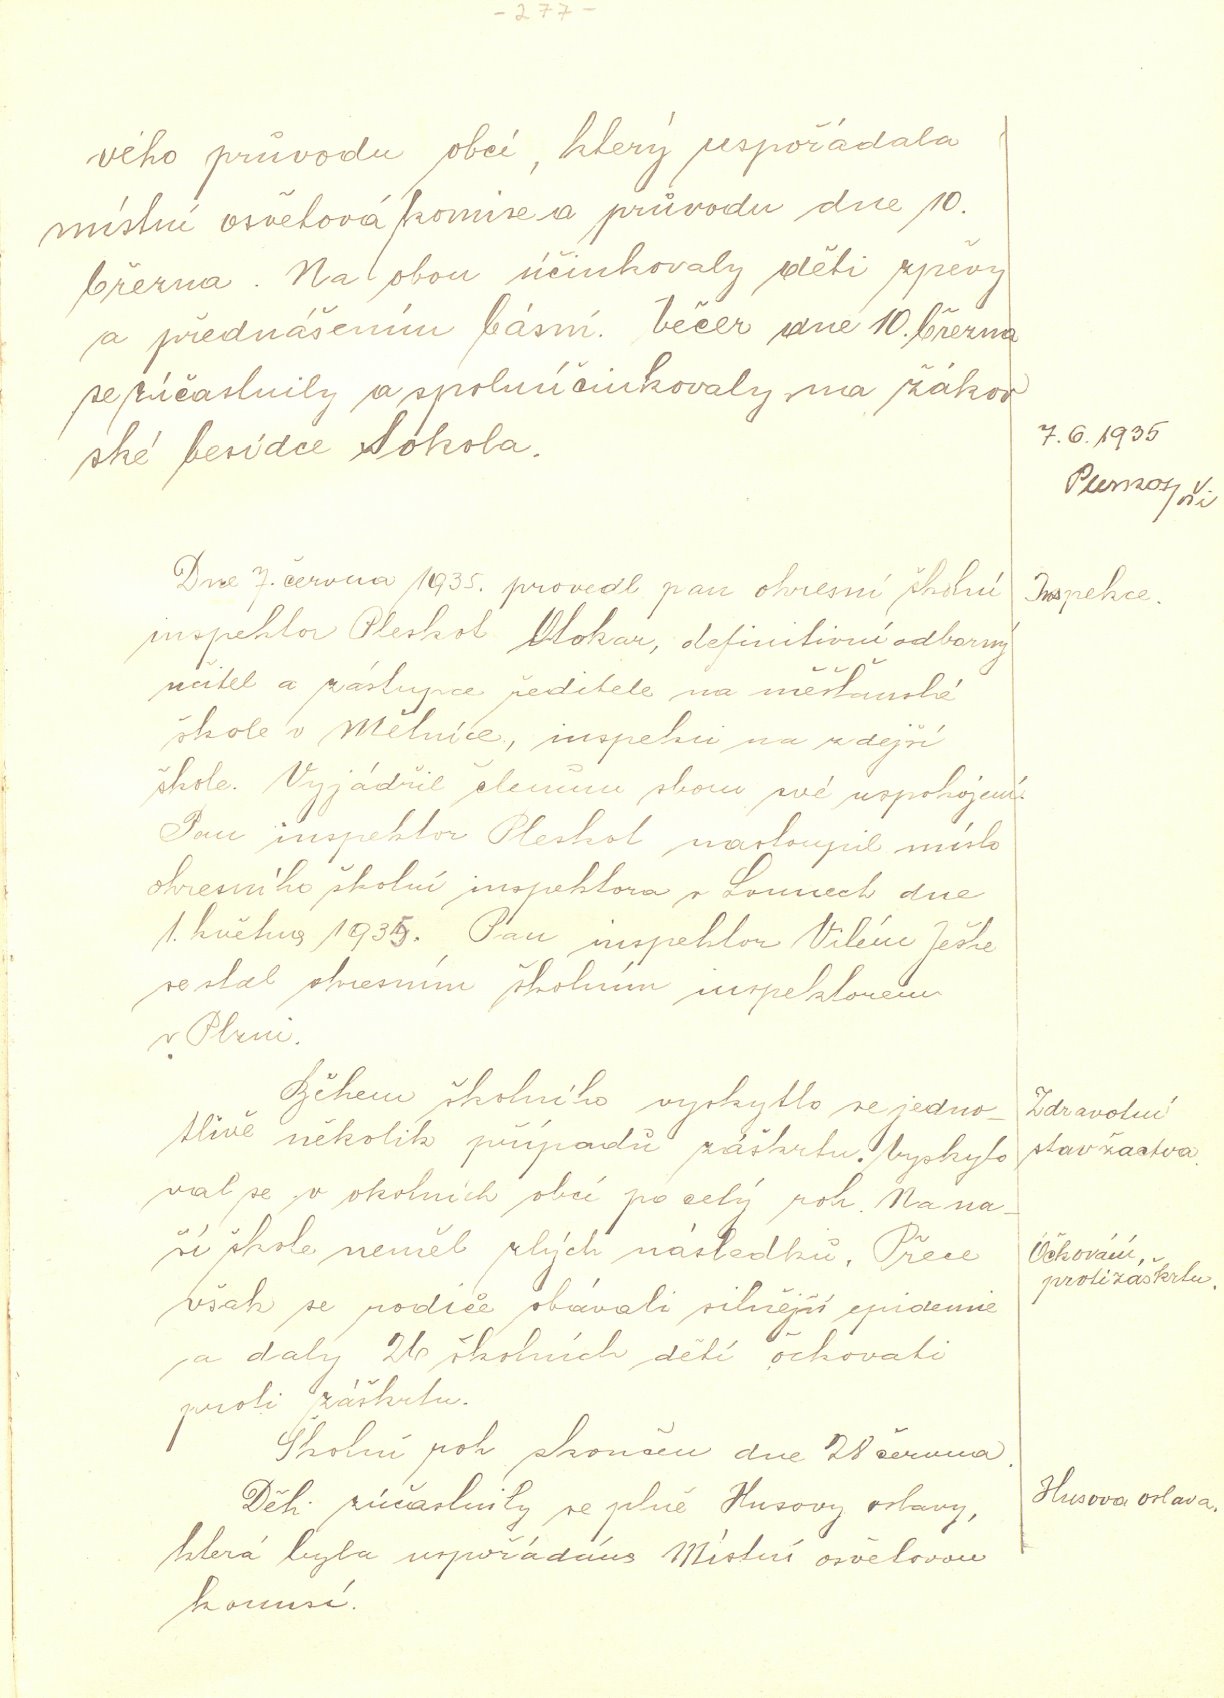 - 277 -
vého průvodu obcí, který uspořádala
místní osvětová komise a průvodu dne 10.
března. Na obou účinkovaly děti zpěvy
a přednášením básní. Večer dne 10. března
se zúčastnily a spoluúčinkovaly na žákov
ské besídce Sokola.
7. 6. 1935
Dne 7. června 1935. provedl pan okresní školní
Inspekce.
inspektor Pleskot Otokar, definitivní odborný
učitel a zástupce ředitele na měšťanské
škole v Mělníce, inspekci na zdejší
škole. Vyjádřil členům sboru své uspokojení.
Pan inspektor Pleskot nastoupil místo
okresního školní inspektora v Lounech dne
1. května 1935. Pan inspektor Vilém Ješke
se stal okresním školním inspektorem
v Plzni.
Během školního vyskytlo se jedno-
tlivě několik případů záškrtu. Vyskyto
val se v okolních obcí po celý rok. Na na-
ší škole neměl zlých následků. Přece
však se rodiče obávali silnější epidemie
a daly 26 školních dětí očkovati
proti záškrtu.
Zdravotní
stav žactva.
Očkování,
proti záškrtu.
Školní rok skončen dne 28 června.
Děti zúčastnily se plně Husovy oslavy,
Husova oslava.
která byla uspořádána Místní osvětovou
komisí.